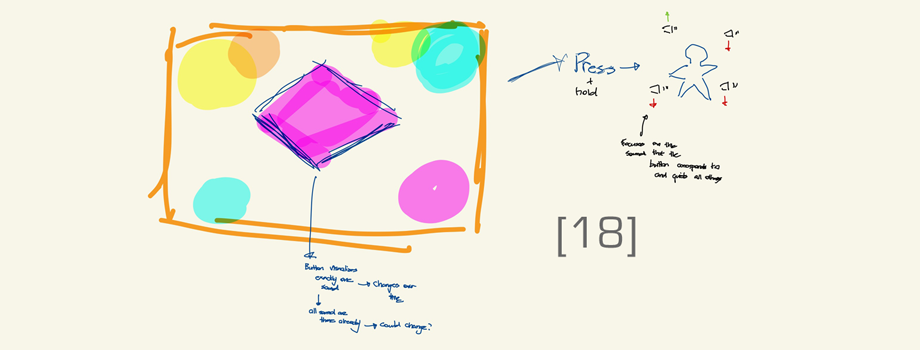 Press
+
hold
Focuses on the
sound that the
button corresponds to
and quiets all others
[18]
Button
exactly one
sound
Changes over
time
all sound are
there already
Could change?